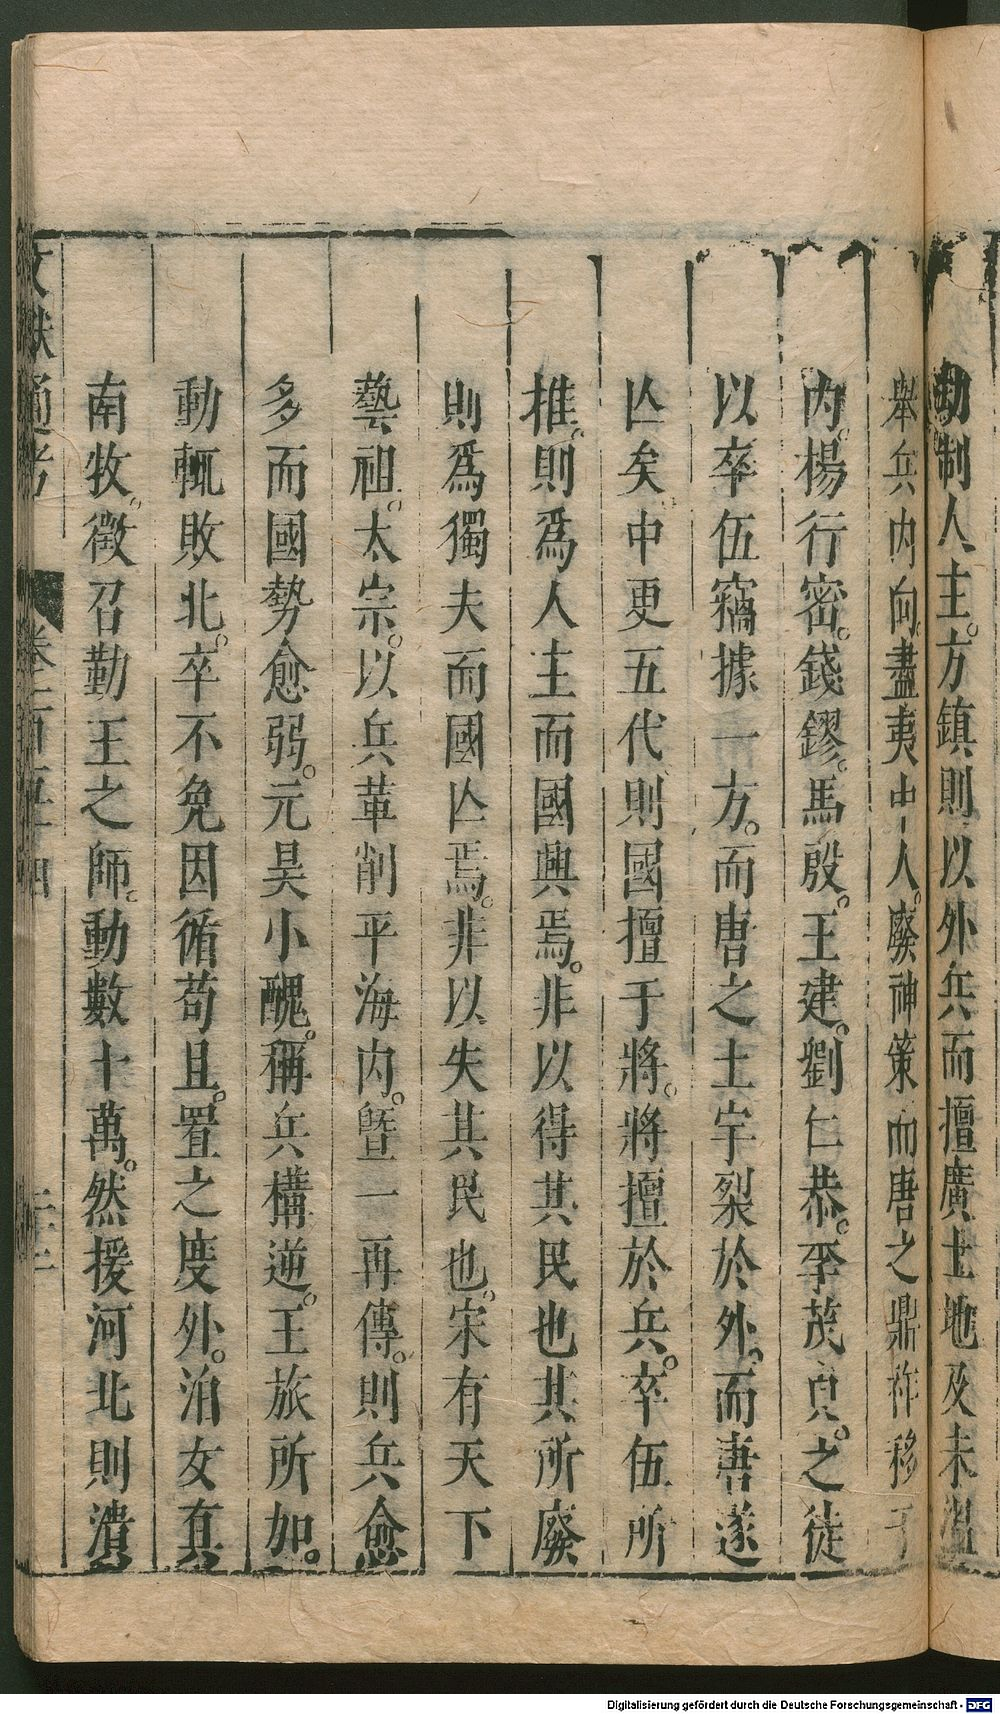 劫制人主。方鎮則以外兵而擅廣土地及朱溫
舉兵內向。盡夷中人。廢神策。而唐之鼎祚移于
內。楊行密。錢鏐。馬殷。王建。劉仁恭。李茂貞。之徒
以卒伍竊據一方。而唐之土宇裂於外。而唐遂
亾矣。中更五代。則國擅于將。將擅於兵。卒伍所
推。則爲人主而國興焉。非以得其民也其所廢
則爲獨夫而國亾焉。非以失其民也。宋有天下
藝祖。太宗。以兵革削平海內。曁一再傳。則兵愈
多而國勢愈弱。元昊小醜。稱兵構逆。王旅所加。
動輒敗北。卒不免因循苟且。置之度外。洎女眞
南牧。徵召勤王之師。動數十萬。然援河北則潰
文獻通考 卷一百五十四
Digitalisierung gefördert durch die Deutsche Forschungsgemeinschaft - DFG